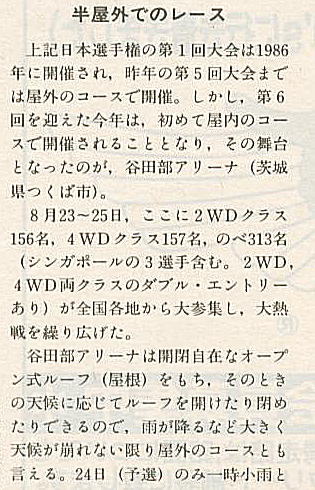 半屋外でのレース
上記日本選手権の第1回大会は1986
年に開催され，昨年の第5回大会まで
は屋外のコースで開催。しかし，第6
回を迎えた今年は，初めて屋内のコー
スで開催されることとなり，その舞台
となったのが，谷田部アリーナ（茨城
県つくば市）。
8月23〜25日，ここに2WDクラス
156名，4WDクラス157名，のべ313名
（シンガポールの3選手含む。2WD，
4WD両クラスのダブル・エントリー
あり）が全国各地から大参集し，大熱
戦を繰り広げた。
谷田部アリーナは開閉自在なオープ
ン式ルーフ（屋根）をもち，そのとき
の天候に応じてルーフを開けたり閉め
たりできるので，雨が降るなど大きく
天候が崩れない限り屋外のコースとも
言える。24日（予選）のみ一時小雨と